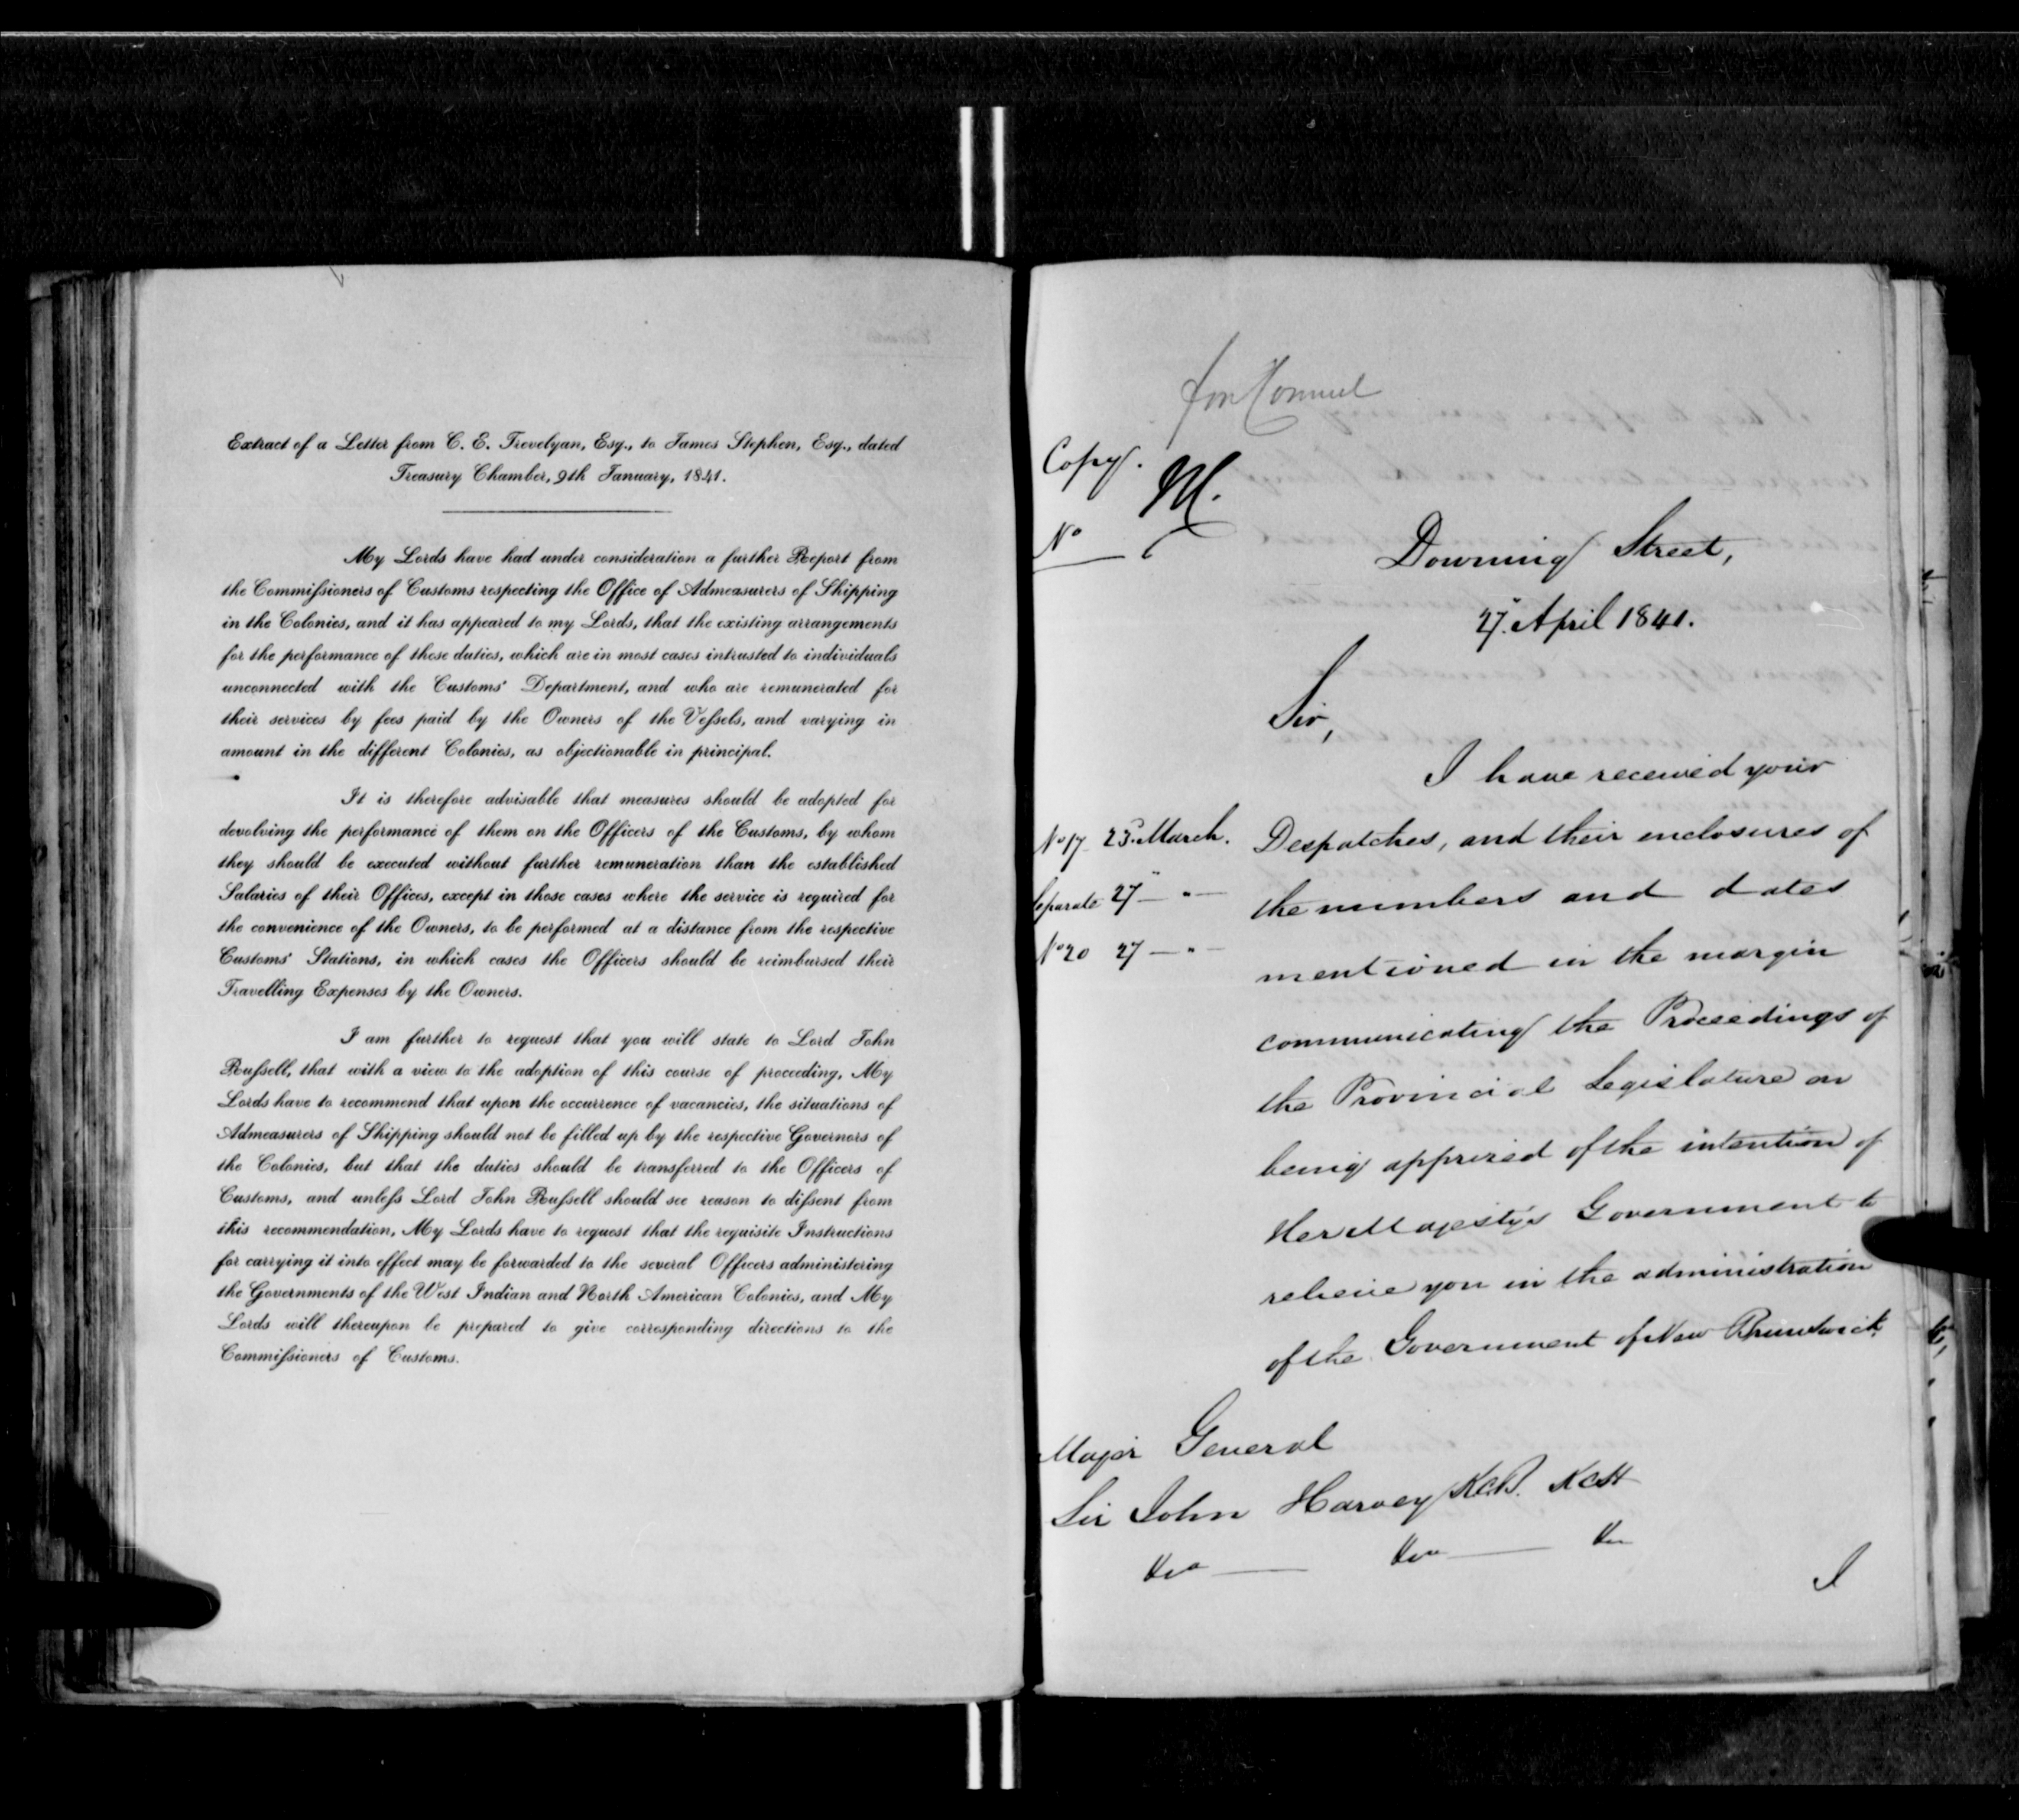 Extract of a Letter from C. E. Trevelyan, Esq., to James Stephen, Esq., dated
Treasury Chamber, 9th January, 1841.
My Lords have had under consideration a further Report from
the Commiſsioners of Customs respecting the Office of Admeasurers of Shipping
in the Colonies, and it has appeared to my Lords, that the existing arrangements
for the performance of these duties, which are in most cases intrusted to individuals
unconnected with the Customs' Department, and who are remunerated for
their services by fees paid by the Owners of the Veſsels, and varying in
amount in the different Colonies, as objectionable in principal.
It is therefore advisable that measures should be adopted for
devolving the performance of them on the Officers of the Customs, by whom
they should be executed without further remuneration than the established
Salaries of their Offices, except in those cases where the service is required for
the convenience of the Owners, to be performed at a distance from the respective
Customs' Stations, in which cases the Officers should be reimbursed their
Travelling Expenses by the Owners.
I am further to request that you will state to Lord John
Ruſsell, that with a view to the adoption of this course of proceeding, My
Lords have to recommend that upon the occurrence of vacancies, the situations of
Admeasurers of Shipping should not be filled up by the respective Governors of
the Colonies, but that the duties should be transferred to the Officers of
Customs, and unleſs Lord John Ruſsell should see reason to diſsent from
this recommendation, My Lords have to request that the requisite Instructions
for carrying it into effect may be forwarded to the several Officers administering
the Governments of the West Indian and North American Colonies, and My
Lords will thereupon be prepared to give corresponding directions to the
Commiſsioners of Customs.
Copy.
M.
No
Downing Street,
27. April 1841.
Sir,
I have received your
No 17 25. March. Despatches, and their enclosures of
Separate 27 — " — the numbers and dates
No 20 27 — " — mentioned in the margin
communicating the Proceedings of
the Provincial Legislature on
being apprized of the intention of
Her Majesty's Government to
relieve you in the administration
of the Government of New Brunswick.
Major General
Sir John Harvey K.C.B. KCH
&ca — &ca — &c
I